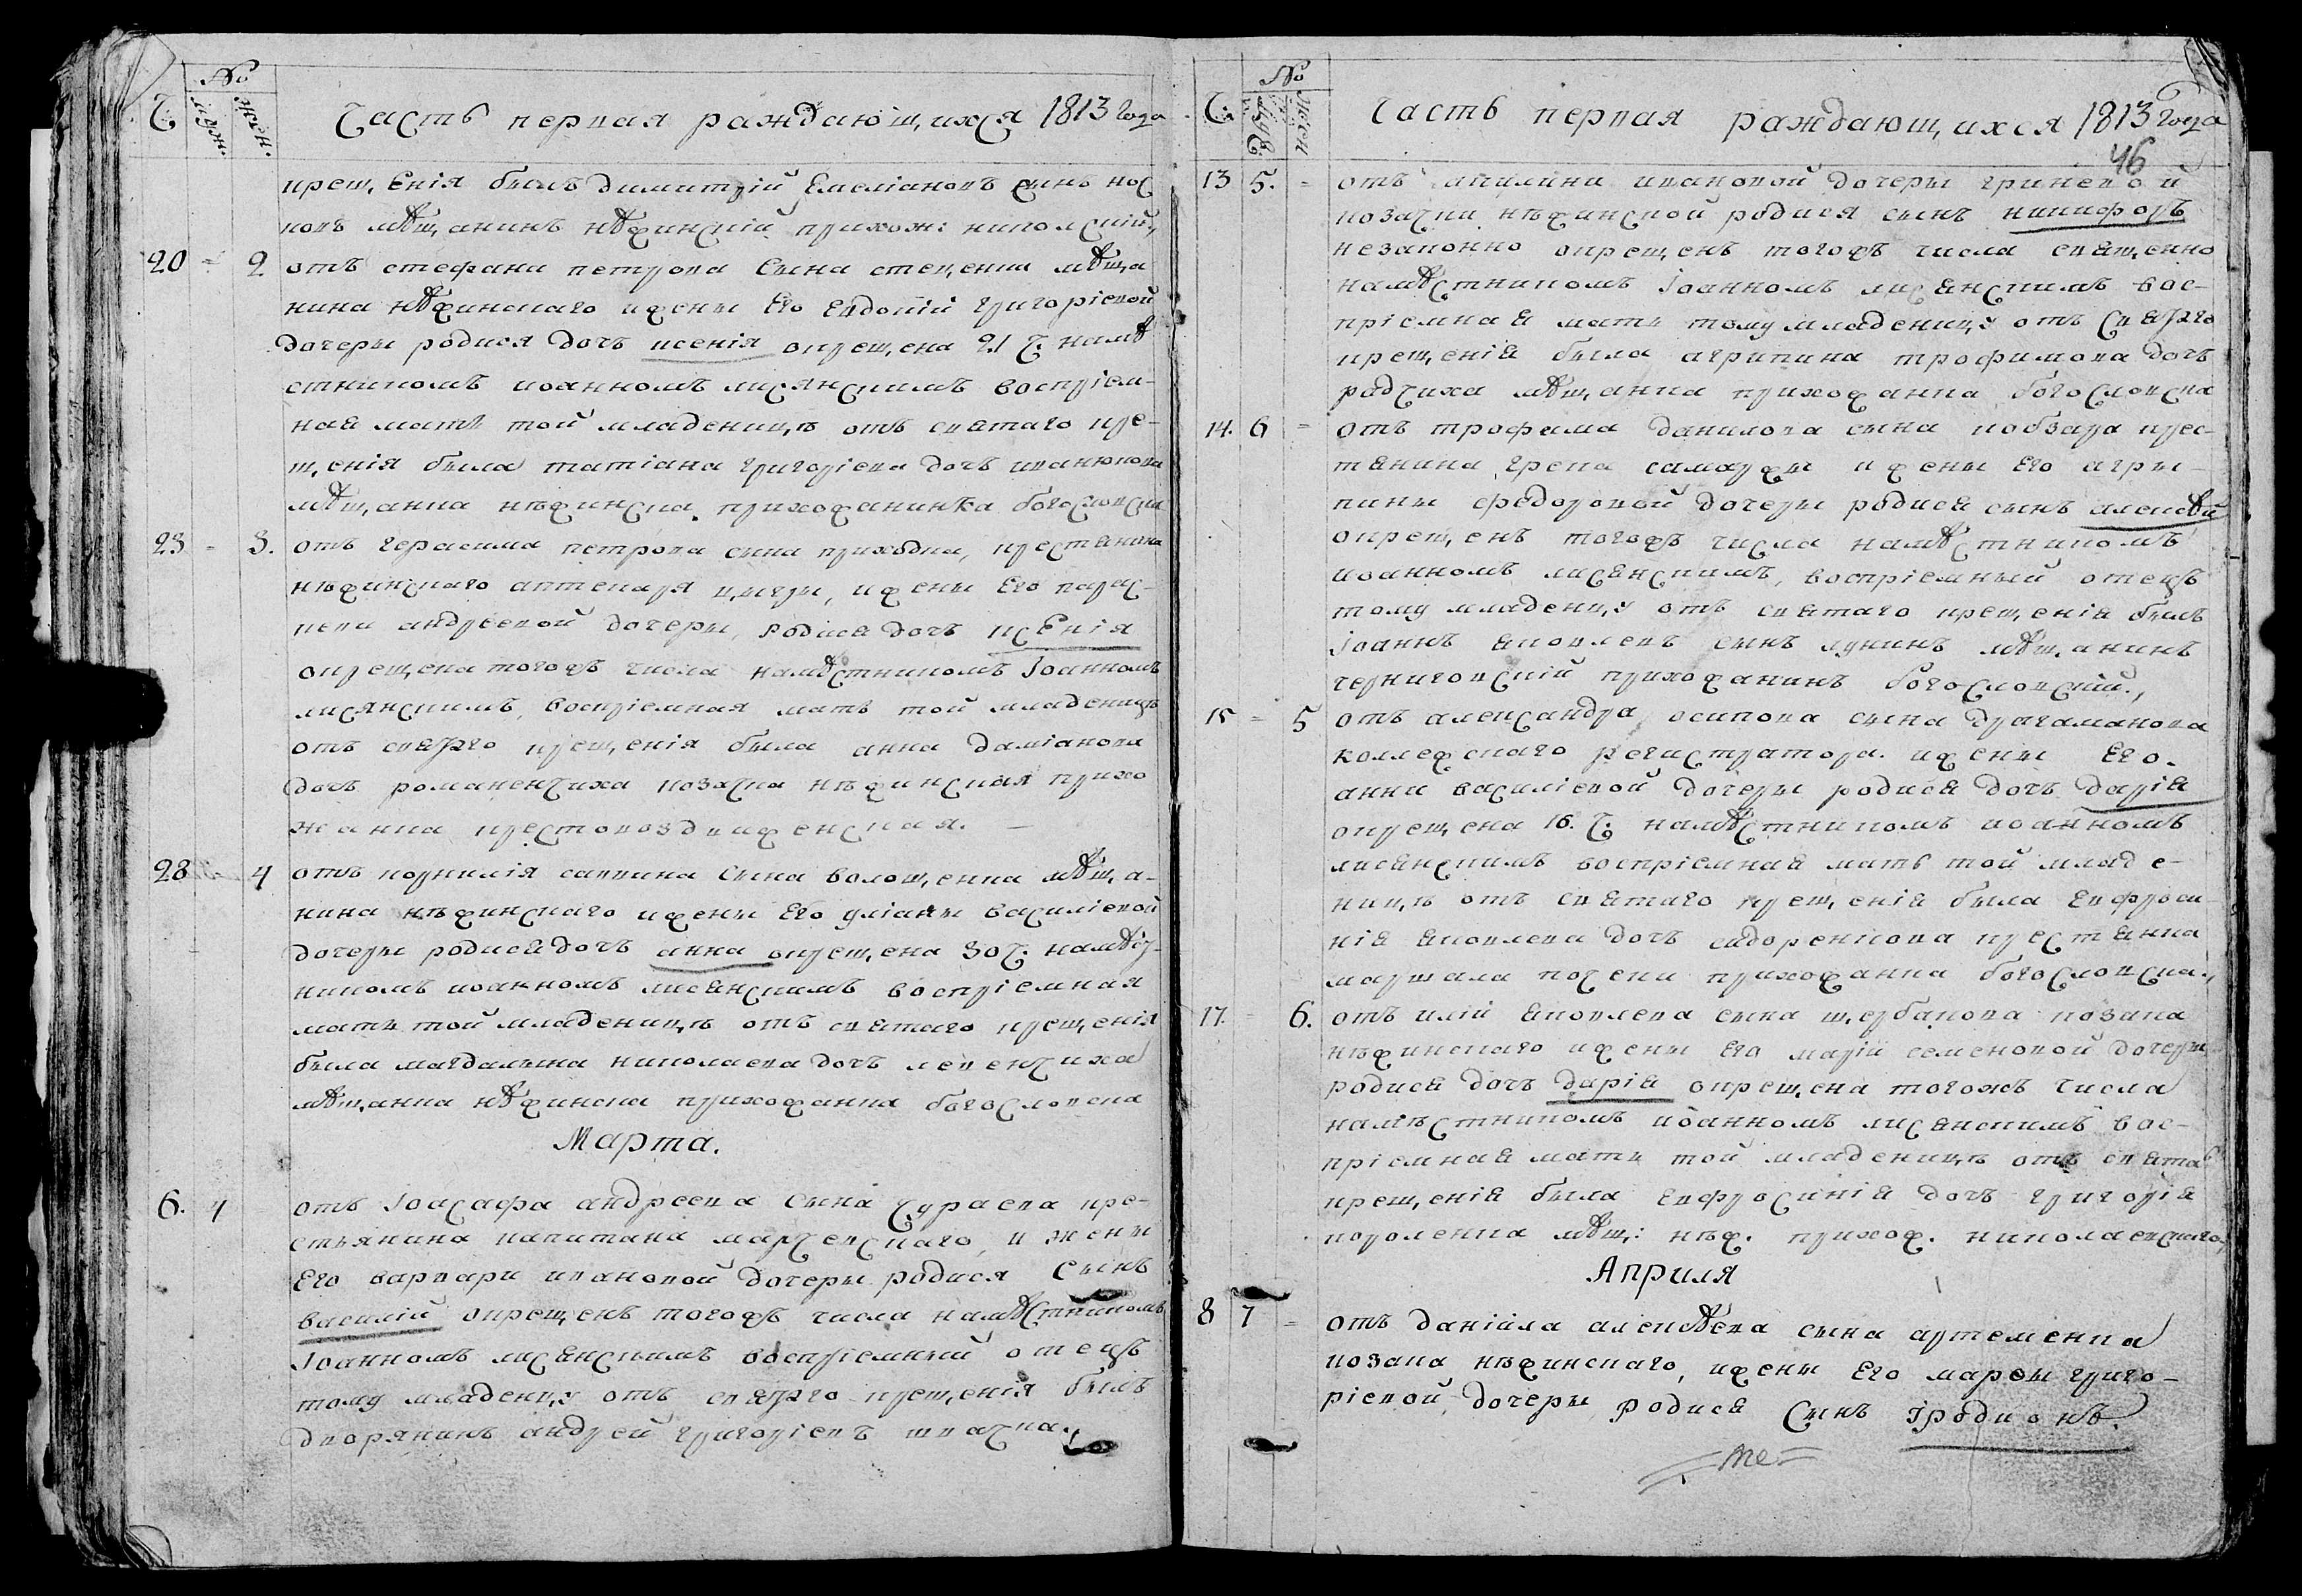 №
Ч. муж. жен. Часть первая раждающихся 1813 года
крещенія былъ димитрій Емеліановъ сынъ нос
ковъ мѣщанинъ нѣжинскій прихож: николскій,
20 = 2 отъ стефана петрова сына стеценка мѣща
нина нѣжинскаго ижены Его Евдокіи григоріевой
дочеры родися дочъ ксенія окрещена 21 ч. намѣ
стникомъ иоанномъ лисянскимъ воспріем-
ная мать той младеницѣ отъ святаго кре-
щенія была татіана григоріева дочъ иванюкова
мѣщанка нѣжинска прихожанинка богословска
23 = 3. отъ герасима петрова сына приходка, крестянина
нѣжинскаго аптекаря цигры, ижены Его парас-
кеви андреевой дочеры, родися дочъ ксЕнія
окрещена тогожъ числа намѣстникомъ Іоанномъ
лисянскимъ, воспріемная мать той младеницѣ
отъ святаго крещенія была анна даміанова
дочъ романенчиха козачка нѣжинская прихо
жанка крестовоздвиженская. —
28 4 отъ корнилія саввина сына волощенка мѣща-
нина нѣжинскаго ижены Его уліаны василіевой
дочеры родися дочъ анна окрещена 30 ч. намѣст-
никомъ иоанномъ лисянскимъ воспріемная
мать той младеницѣ отъ святаго крещенія
была магдалына николаева дочъ левенчиха
мѣщанка нѣжинска прихожанка богословска
Марта.
6. 4 отъ Іоасафа андреева сына Чураева кре-
стьянина капитана марченскаго, и жены
Его варвары ивановой дочеры родися Сынъ
василій окрещенъ тогожъ числа намѣстникомъ
Іоанномъ лисянскимъ воспріемный отецъ
тому младенцу отъ святаго крещенія былъ
дворянинъ андрей григоріевъ шпачка.,
№
Ч. Муж. Жен Часть первая раждающихся 1813 года
46
13 5. = отъ акилини ивановой дочеры гриневой
козачки нѣжинской родися сынъ никифоръ
незаконно окрещенъ тогожъ числа священно
намѣстникомъ Іоанномъ лисянскимъ вос-
пріемная мать тому младенцу отъ святаго
крещенія была агрипина трофимова дочъ
радчиха мѣщанка прихожанка богословска
14. 6 = отъ трофима данилова сына кобзара крес-
тянина грека самауры ижены Его агры-
пины федоровой дочеры родися сынъ алексѣй
окрещенъ тогожъ числа намѣстникомъ
иоанномъ лисянскимъ, воспріемный отецъ
тому младенцу отъ святаго крещенія былъ
Іоаннъ яковлевъ сынъ лунинъ мѣщанинъ
черниговскій прихожанинъ богословскій.,
15 = 5 отъ александра осипова сына драгаманова
коллежскаго регистратора. ижены Его.
анни василіевой дочеры родися дочъ дарія
окрещена 16. ч. намѣстникомъ иоанномъ
лисянскимъ воспріемная мать той младе-
ницѣ отъ святаго крещенія была Евфроси
нія яковлева дочъ сидоренкова крестянка
маршала почеки прихожанка богословска.,
17. = 6. отъ иліи яковлева сына щербакова козака
нѣжинскаго ижены Его маріи семеновой дочеры
родися дочъ дарія окрещена тогожъ числа
намѣстникомъ иоанномъ лисянскимъ вос-
пріемная мать той младеницѣ отъ святаго
крещенія была Евфросинія дочъ григорія
короленка мѣщ: нѣж. прихож. николаевскаго,
Априля
8 7 = отъ даніила алексѣева сына артеменка
козака нѣжинскаго, ижены Его марфы григо-
ріевой дочеры родися Сынъ Іродіонъ.